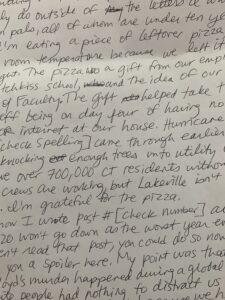 only do outside of the letters a w
pals, all of whom are under ten ye
I'm eating a piece of leftover pizza
room temperature because we left it
The pizza a gift from our emp
tchkiss School, and the idea of our
of Faculty. The gift helped take t
off being on day four of having no
internet at our house. Hurricane
[check spelling] came through earlier
knocking enough trees into utility
over 700,000 CT residents without
crews are working, but Lakeville isn't
I'm grateful for the pizza.
now I wrote post # [check number] a
20 won't go down as the worst year e
n't read that post, you could do so now
you a spoiler here. My point was tha
oyd's murder happened during a global
people had nothing to distract us